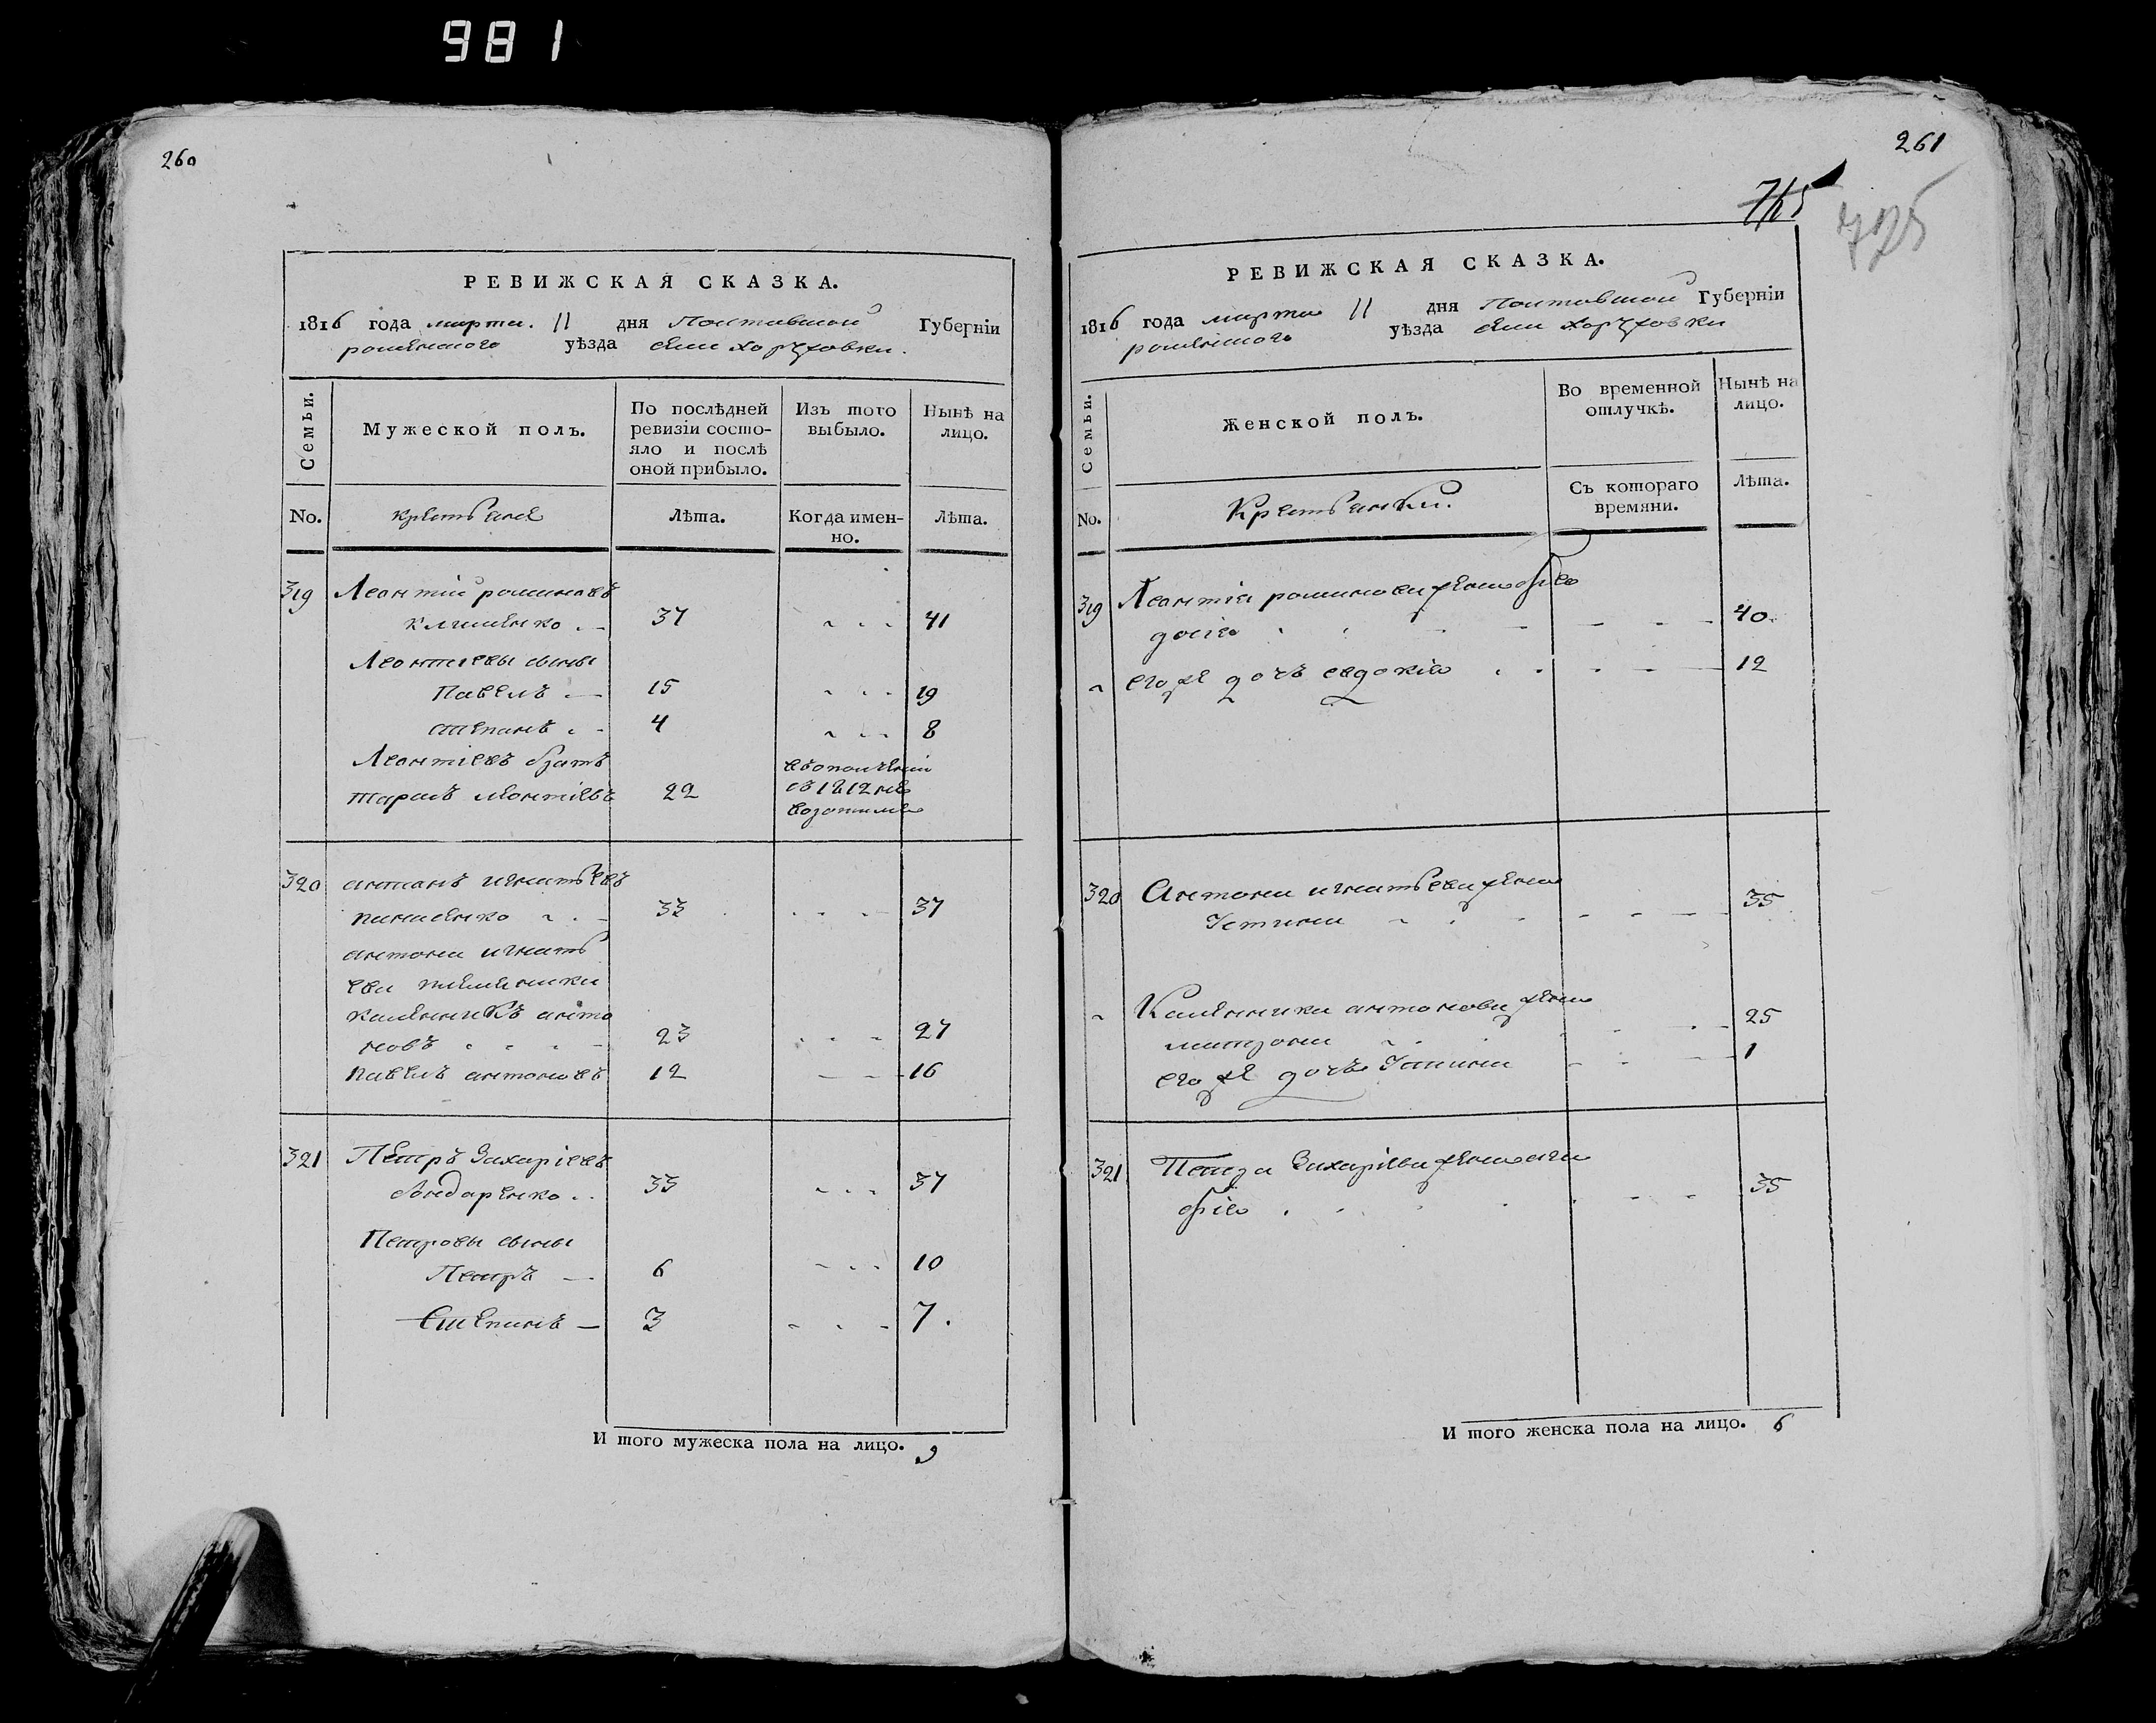 981
260
РЕВИЖСКАЯ СКАЗКА.
1816 года марта 11 дня Полтавской Губернїи
роменского уѣзда села Хоружовки.
Семьи.
Мужеской полъ.
По послѣдней
ревизїи состо-
яло и послѣ
оной прибыло.
Изъ того
выбыло.
Нынѣ на
лицо.
No.
крестьяне
Лѣта.
Когда имен-
но.
Лѣта.
319 Леонтій романовъ
клименко 37 41
Леонтіевы сыны
Павелъ 15 19
степанъ 4 8
Леонтіевъ братъ
тарасъ леонтіевъ 22
въ ополченіи
съ 1812 не
320 антонъ игнатьевъ
33 37
антона игнать
ева племеники
калѣнникъ анто
новъ 23 27
павелъ антоновъ 12 16
321 Петръ Захаріевъ
бондаренко 33 37
Петровы сыны
Петръ 6 10
Степанъ 3 7.
И того мужеска пола на лицо. 9
261
715
РЕВИЖСКАЯ СКАЗКА.
1816 года марта 11 дня Полтавской Губернїи
роменского уѣзда села Хоружовки
Семьи.
Женской полъ.
Во временной
отлучкѣ.
Нынѣ на
лицо.
No.
Крестьянки.
Съ котораго
времяни.
Лѣта.
319 Леонтія романова жена фео
досія 40
его же дочь евдокія 12
320 Антона игнатьева жена
Устина 35
Калѣнника антонова жена
матрона 25
его же дочь Устина 1
321 Петра Захаріева жена ага
фія 35
И того женска пола на лицо. 6